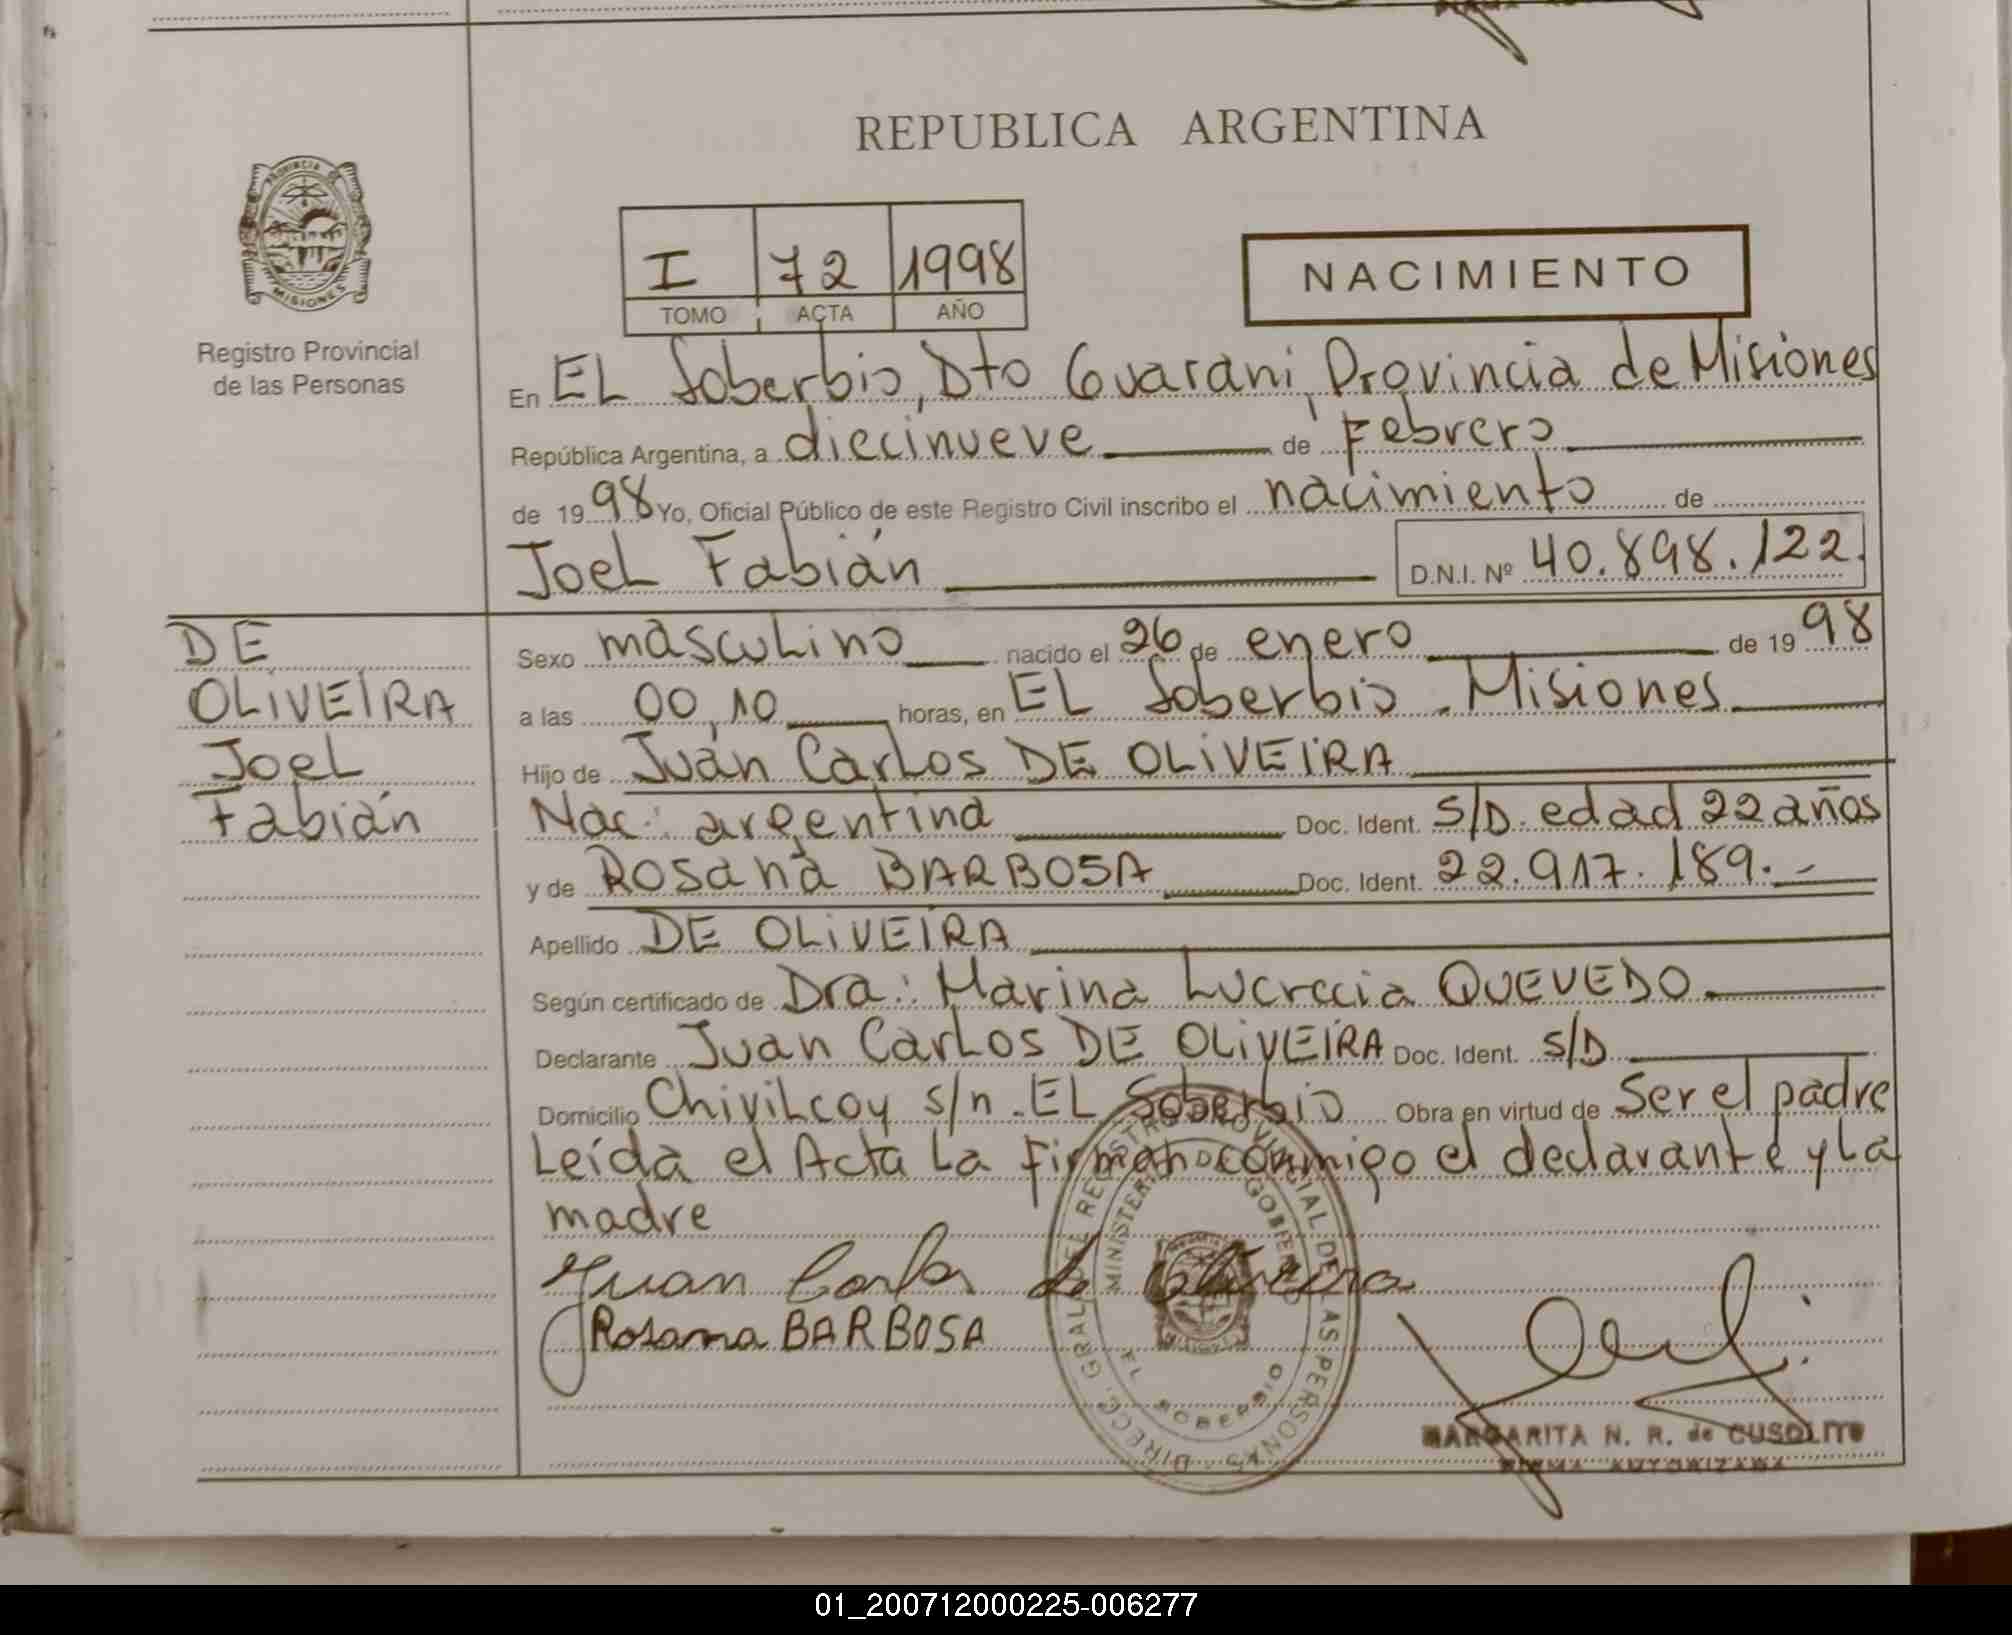 REPUBLICA ARGENTINA
PROVINCIA DE
MISIONES
Registro Provincial
de las Personas
I 72 1998
TOMO ACTA AÑO
NACIMIENTO
En EL Soberbio, Dto Guarani, Provincia de Misiones
República Argentina, a diecinueve de Febrero
de 1998 Yo, Oficial Público de este Registro Civil inscribo el nacimiento de
Joel Fabián D.N.I. Nº 40.898.122.
DE
OLIVEIRA
Joel
Fabián
Sexo masculino nacido el 26 de enero de 1998
a las 00,10 horas, en EL Soberbio . Misiones
Hijo de Juan Carlos DE OLIVEIRA
Nac: argentina Doc. Ident. S/D. edad 22 años
y de Rosana BARBOSA Doc. Ident. 22.917.189.-
Apellido DE OLIVEIRA
Según certificado de Dra: Marina Lucrecia QUEVEDO
Declarante Juan Carlos DE OLIVEIRA Doc. Ident. S/D
Domicilio Chivilcoy s/n. EL Soberbio Obra en virtud de Ser el padre
Leída el Acta La firman conmigo el declarante y La
madre
Juan Carlos de Oliveira
Rosana BARBOSA
DIRECC. GRAL. DEL REGISTRO PROVINCIAL DE LAS PERSONAS
MINISTERIO DE GOBIERNO
EL SOBERBIO
MARGARITA N. R. de CUSOLITO
FIRMA AUTORIZADA
01_200712000225-006277